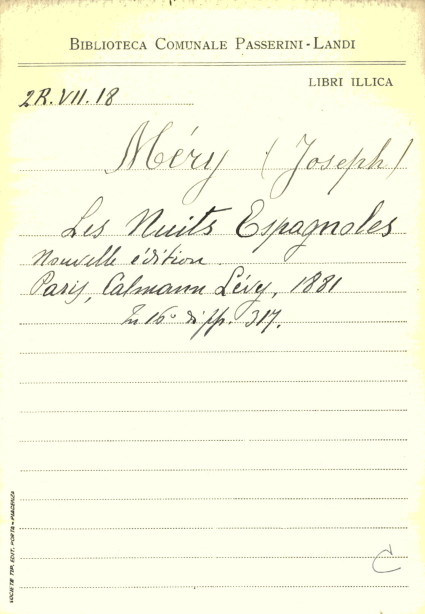 BIBLIOTECA COMUNALE PASSERINI-LANDI
LIBRI ILLICA
2R.VII.18
Méry (Joseph)
Les Nuits Espagnoles
Nouvelle édition.
Paris, Calmann Lévy, 1881
In 16° di pp. 317.
SOCIETÀ TIP. EDIT. PORTA - PIACENZA
C